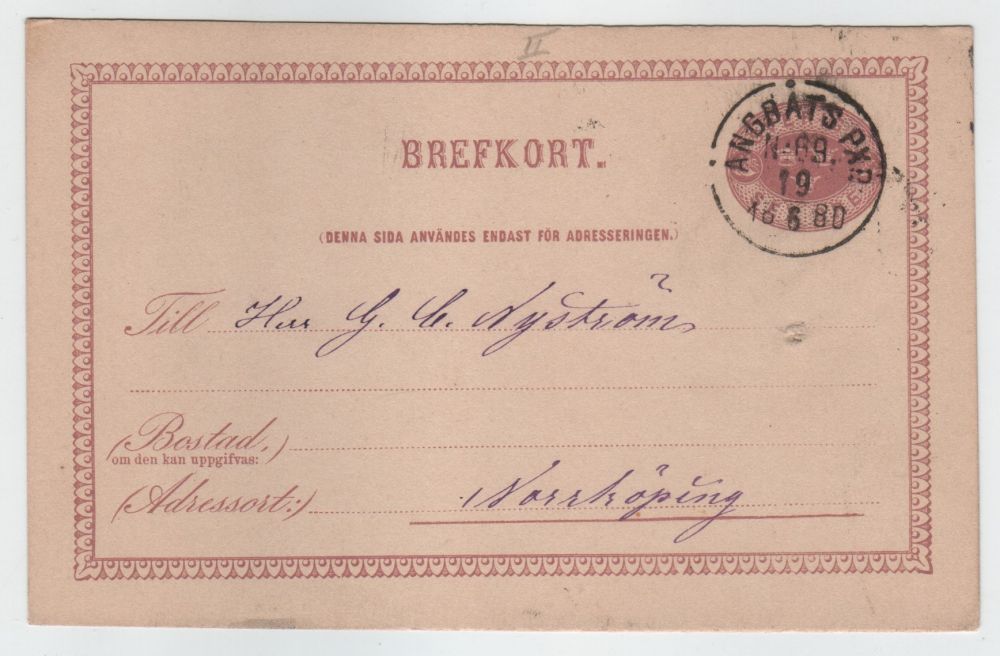 II
BREFKORT.
(DENNA SIDA ANVÄNDES ENDAST FÖR ADRESSERINGEN.)
ÅNGBÅTS PXP.
N:69.
19
16 6 80
Till Herr G. C. Nyström
(Bostad,)
om den kan uppgifvas:
(Adressort:) Norrköping